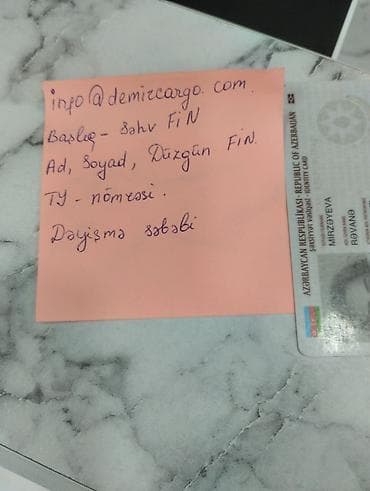 info@demircargo.com.
Başlıq - Səhv FİN
Ad, Soyad, Düzgün FİN.
TY - nömrəsi.
Dəyişmə səbəbi
AZƏRBAYCAN RESPUBLİKASI - REPUBLIC OF AZERBAIJAN
ŞƏXSİYYƏT VƏSİQƏSİ - IDENTITY CARD
MİRZƏYEVA
RƏVANƏ